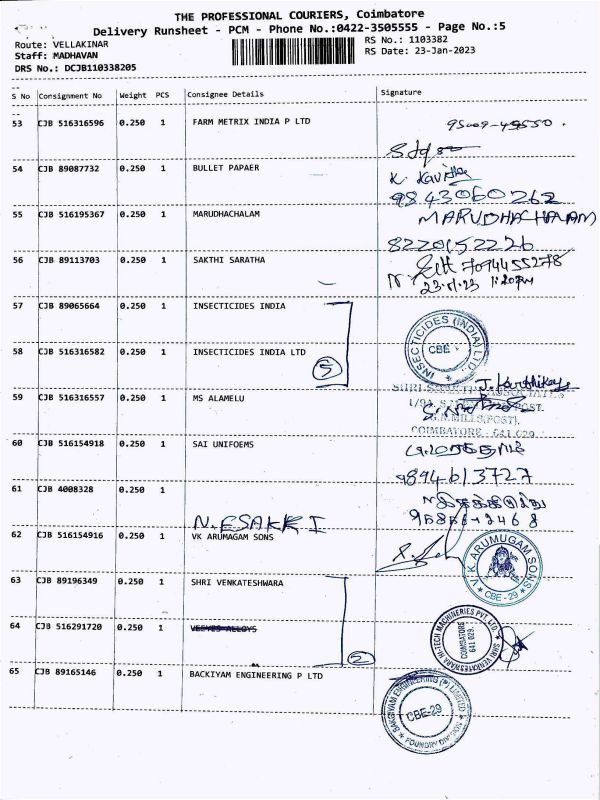 THE PROFESSIONAL COURIERS, Coimbatore
Delivery Runsheet - PCM - Phone No.:0422-3505555 - Page No.:5
Route: VELLAKINAR
RS No.: 1103382
Staff: MADHAVAN
RS Date: 23-Jan-2023
DRS No.: DCJB110338205
S No Consignment No Weight PCS Consignee Details Signature
53 CJB 516316596 0.250 1 FARM METRIX INDIA P LTD
54 CJB 89087732 0.250 1 BULLET PAPAER K. Kavitha
9843060262
55 CJB 516195367 0.250 1 MARUDHACHALAM MARUDHACHALAM
8220152226
56 CJB 89113703 0.250 1 SAKTHI SARATHA 7094455278
23.1.23 1:20pm
57 CJB 89065664 0.250 1 INSECTICIDES INDIA
INSECTICIDES (INDIA) LTD. CBE
58 CJB 516316582 0.250 1 INSECTICIDES INDIA LTD
5
59 CJB 516316557 0.250 1 MS ALAMELU
COIMBATORE - 641 029
60 CJB 516154918 0.250 1 SAI UNIFOEMS
9894613727
61 CJB 4008328 0.250 1
N. ESAKKI
62 CJB 516154916 0.250 1 VK ARUMAGAM SONS
V.K. ARUMUGAM SONS CBE - 29
63 CJB 89196349 0.250 1 SHRI VENKATESHWARA
64 CJB 516291720 0.250 1 VEEYES ALLOYS
SHRI VENKATESWARA HI-TECH MACHINERIES PVT. LTD. COIMBATORE 641 029.
2
65 CJB 89165146 0.250 1 BACKIYAM ENGINEERING P LTD
BAKGIYAM ENGINEERING (P) LIMITED CBE-29 FOUNDRY DIVISION